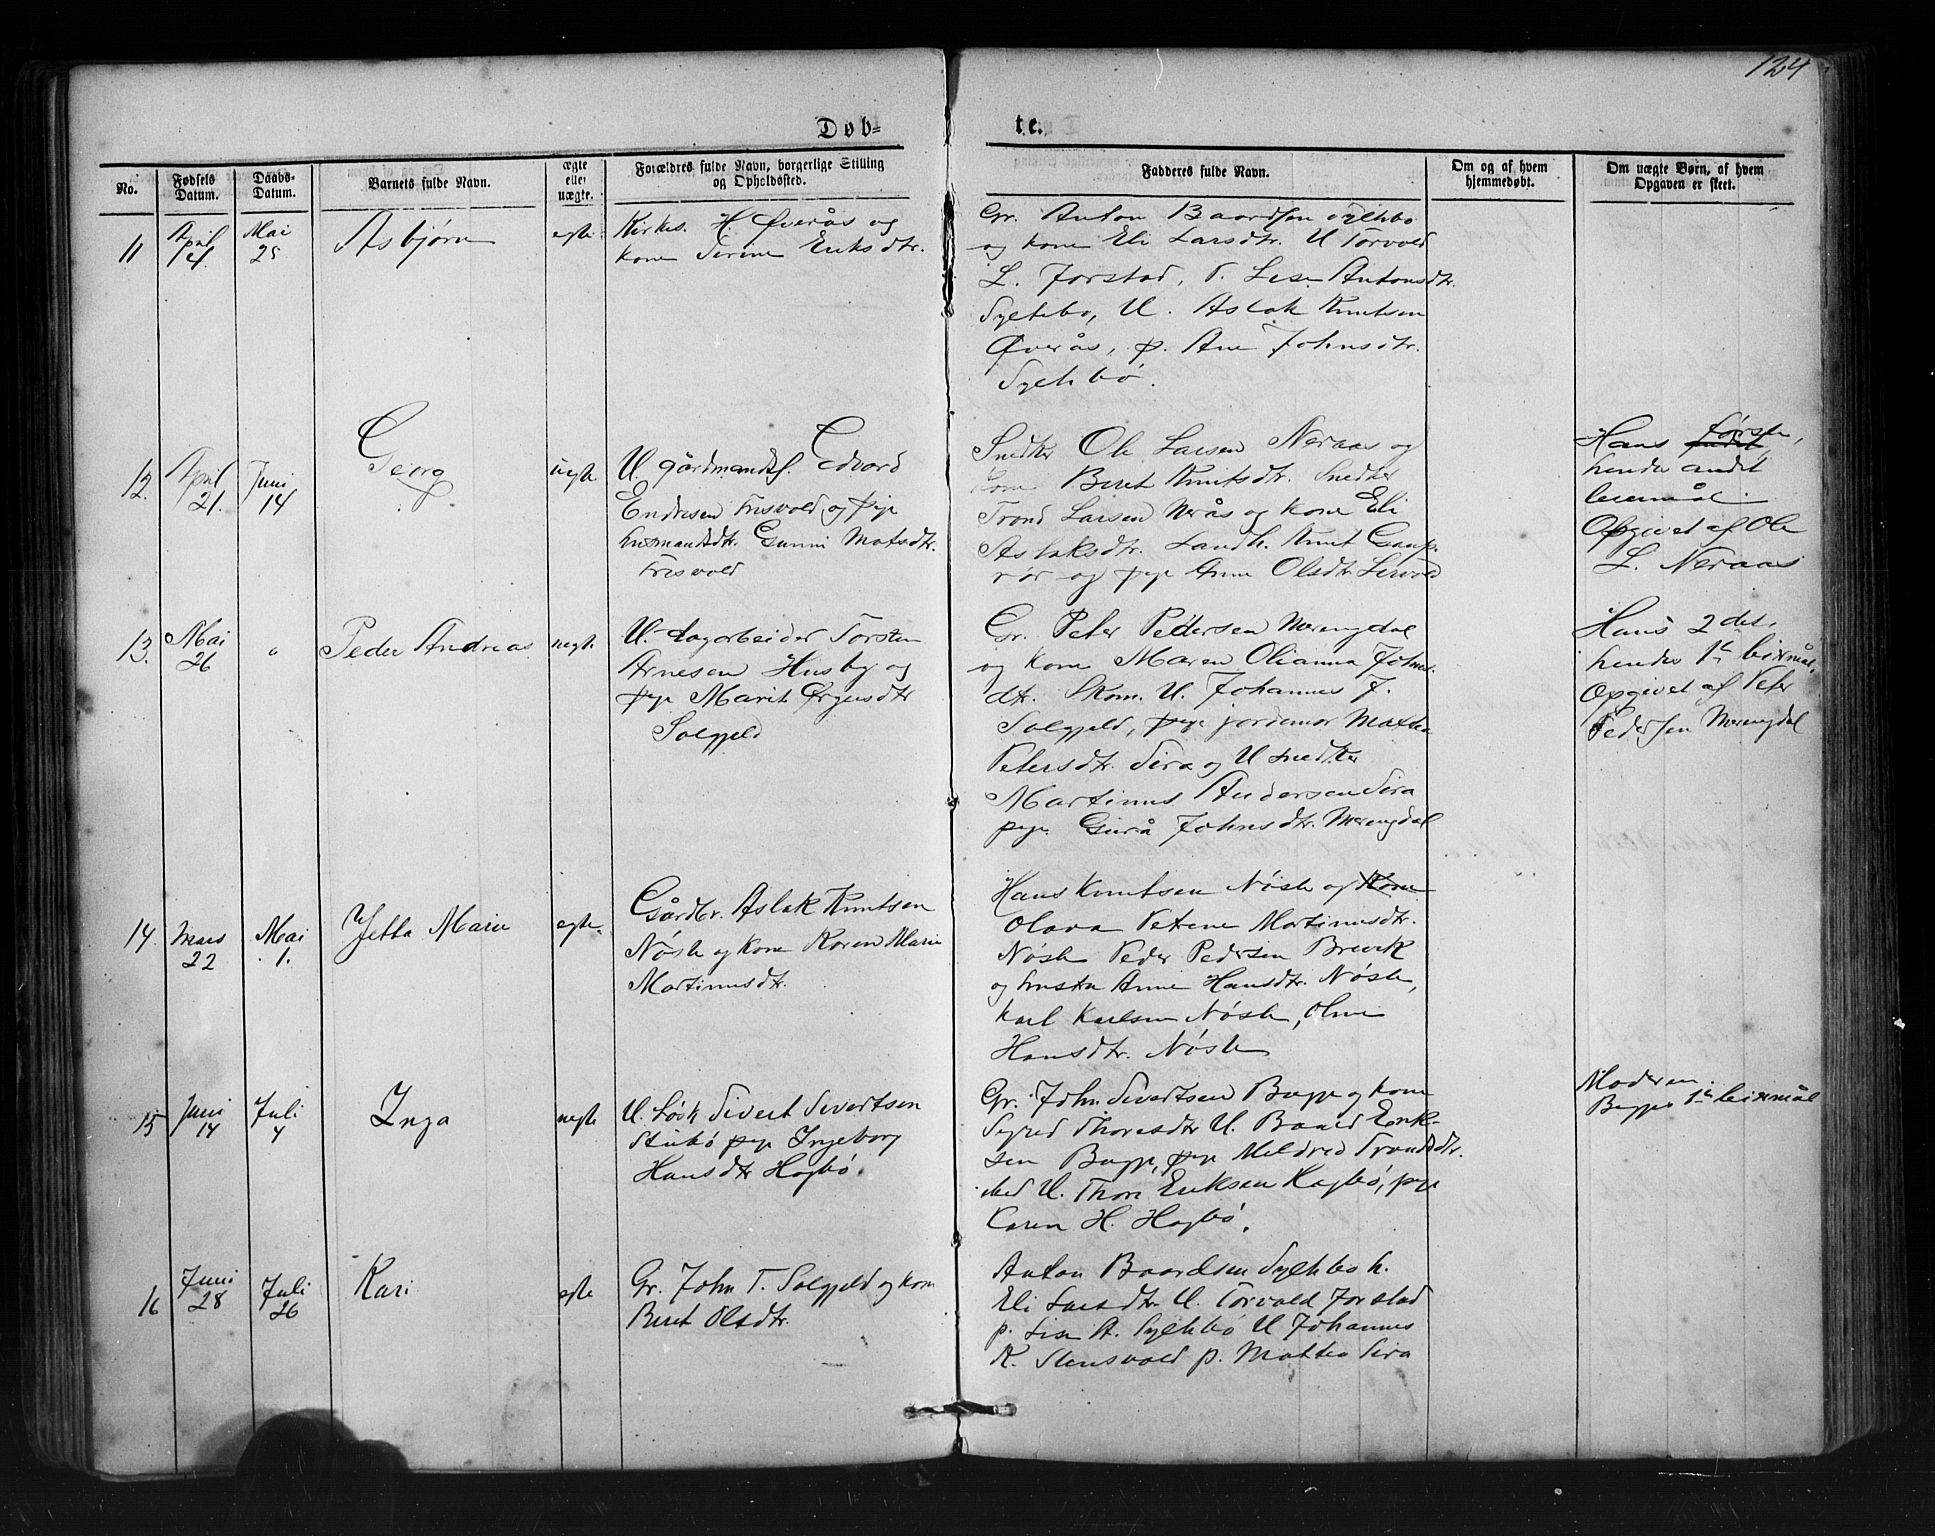 124
Døb=
te.
No.
Fødsels Datum.
Daabs-Datum.
Barnets fulde Navn.
ægte eller uægte.
Forældres fulde Navn, borgerlige Stilling og Opholdssted.
Fadderes fulde Navn.
Om og af hvem hjemmedøbt.
Om uægte Børn, af hvem Opgaven er skeet.
11
April 4.
Mai 25
Asbjørn
egte
Kirkes. H. Øverås og
kone Serine Eriksdtr.
Gr. Anton Baardsen Syltebø
og kone Eli Larsdtr. U Torvald
L. Forstad, P. Lise Antonsdtr.
Syltebø, U. Aslak Knutsen
Øverås, p. Ane Johnsdtr.
Syltebø.
12.
April 21.
Juni 14
Georg
uegte
U. gårdmandss. Edvard
Endresen Frisvold og pige
husmandsdtr. Gunni Matsdtr.
Frisvold
Snedker Ole Larsen Neraas og
kone Beret Knutsdtr. Snedker
Trond Larsen Nerås og kone Eli
Aslaksdtr. Landh. Knut Gaup-
rør og pige Anne Olsdtr.
Hans første,
hendes andet
leiermål.
Opgivet af Ole
L. Neraas
13.
Mai 26
"
Peder Andreas
uegte
U. dagarbeider Torsten
Arnesen Husby og
pige Marit Ørgensdtr
Solgjeld
Gr. Peter Pedersen Merengdal
og kone Maren Olianna Johns-
dtr. Skom. U. Johannes J.
Solgjeld, pige jordemor Mattea
Petersdtr. Sira og U snedker
Martinus Andersen Sira
pige Gurå Johnsdtr. Merengdal
Hans 2det,
hendes 1ste leiermål.
Opgivet af Peter
Pedersen Merengdal
14.
Mars 22
Mai 1.
Jetta Marie
egte
Gårdbr. Aslak Knutsen
Nøste og kone Karen Marie
Martinusdtr.
Hans Knutsen Nøste og kone
Olava Petrine Martinusdtr.
Nøste Peder Pedersen Brevik
og hustru Anne Hansdtr. Nøste,
Karl Karlsen Nøste, Oline
Hansdtr. Nøste
15
Juni 14
Juli 4
Inga
uegte
U. Løsk Sivert Sivertsen
Stubø pige Ingeborg
Hansdtr Hagbø.
Gr. John Sivertsen Bugge og kone
Sigrid Thoresdtr U. Baard Erik-
sen Bugge, pige Mildred Trondsdtr.
sted U. Thore Eriksen Hagbø, pige
Karen H. Hagbø.
Moderen.
Begges 1ste leiermål
16
Juni 28
Juli 26
Kari
egte
Gr. John T. Solgjeld og kone
Beret Olsdtr.
Anton Baardsen Syltebø k.
Eli Larsdtr. U. Torvald Forstad
p. Lise A. Syltebø U Johannes
K. Stensvold p. Mattea Sira